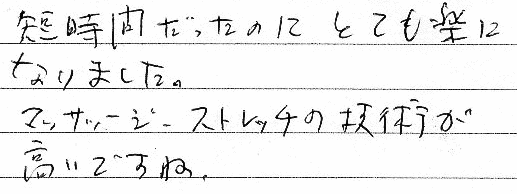 短時間だったのにとても楽に
なりました。
マッサージ・ストレッチの技術が
高いですね。